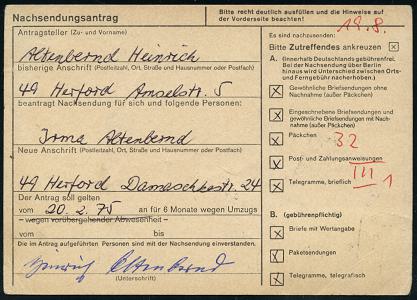 Nachsendungsantrag
Bitte recht deutlich ausfüllen und die Hinweise auf der Vorderseite beachten!
Antragsteller (Zu- und Vorname)
Altenbernd Heinrich
bisherige Anschrift (Postleitzahl, Ort, Straße und Hausnummer oder Postfach)
49 Herford Amselstr. 5
beantragt Nachsendung für sich und folgende Personen:
Irma Altenbernd
Neue Anschrift (Postleitzahl, Ort, Straße und Hausnummer oder Postfach)
49 Herford Damaschkestr. 24
Der Antrag soll gelten
vom 20. 2. 75 an für 6 Monate wegen Umzugs
wegen vorübergehender Abwesenheit
vom bis
Die im Antrag aufgeführten Personen sind mit der Nachsendung einverstanden.
Heinrich Altenbernd
(Unterschrift)
19.8.
Es sind nachzusenden:
Bitte Zutreffendes ankreuzen
A. (innerhalb Deutschlands gebührenfrei.
Bei der Nachsendung über Berlin
hinaus wird Unterschied zwischen Orts-
und Ferngebühr nacherhoben.)
Gewöhnliche Briefsendungen ohne
Nachnahme (außer Päckchen)
Eingeschriebene Briefsendungen und
gewöhnliche Briefsendungen mit Nach-
nahme (außer Päckchen)
Päckchen 32
Post- und Zahlungsanweisungen
III 1
Telegramme, brieflich
B. (gebührenpflichtig)
Briefe mit Wertangabe
Paketsendungen
Telegramme, telegrafisch